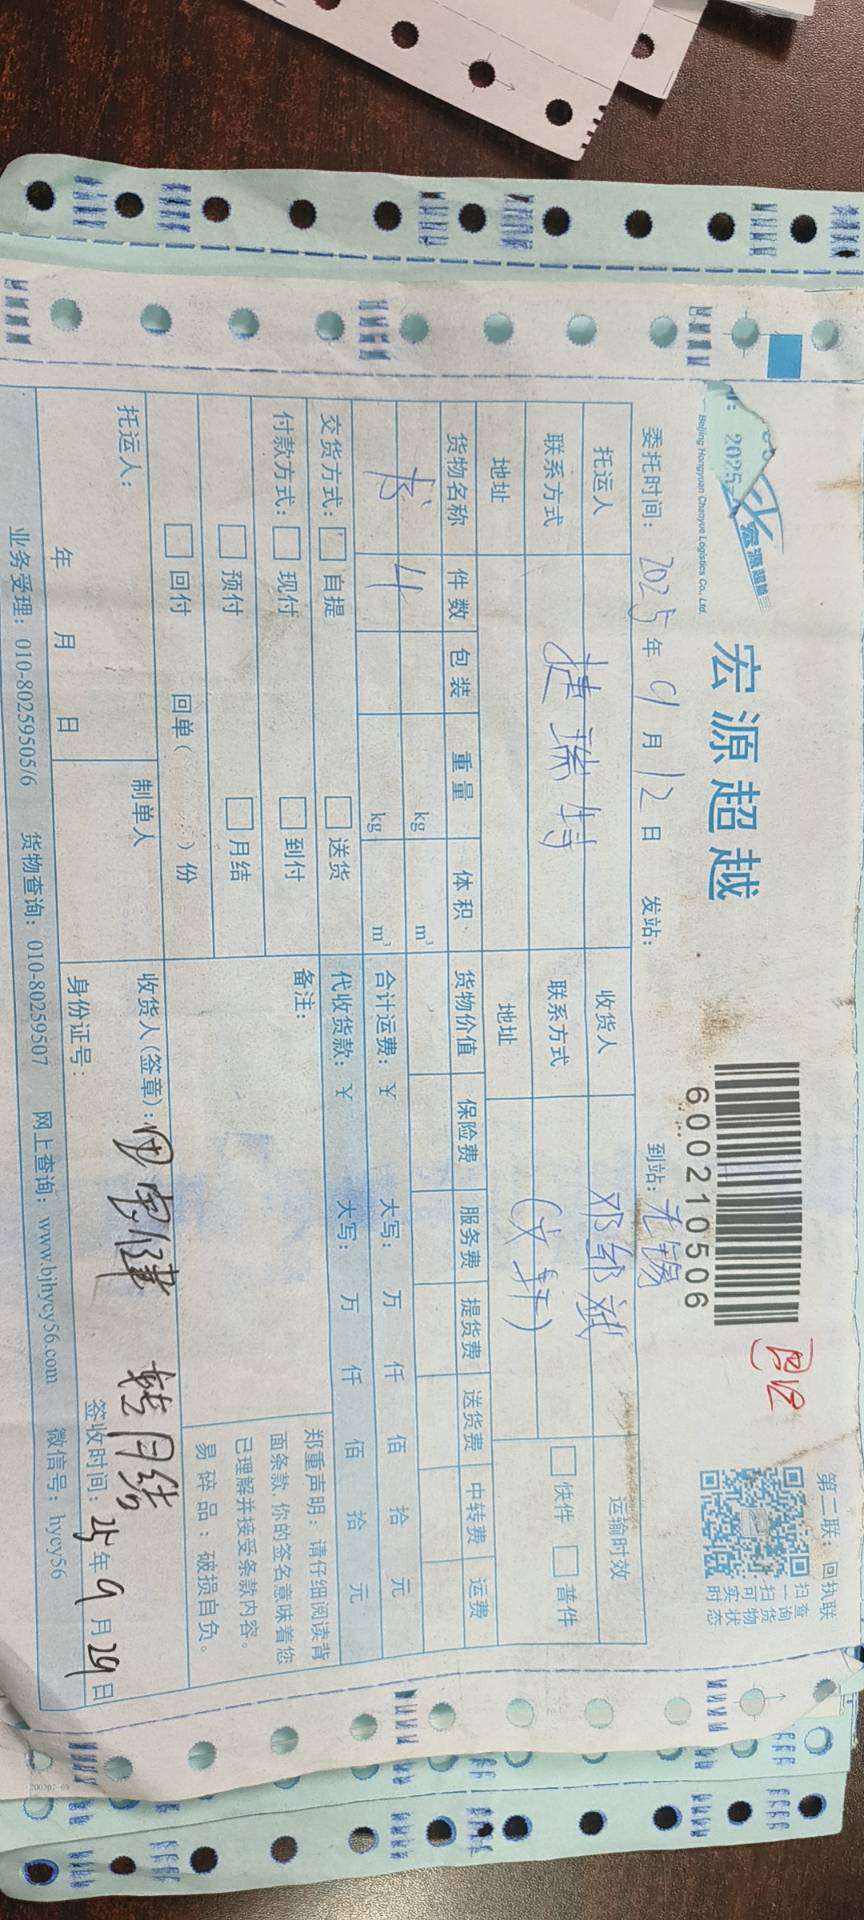 宏源超越
Beijing Hongyuan Chaoyue Logistics Co., Ltd.
宏源超越
600210506
第二联：回执联
扫一扫可实时
查询货物状态
委托时间：2025年9月12日 发站： 到站：无锡
托运人 收货人 运输时效
联系方式 捷瑞特 联系方式 快件 普件
地址 地址 (文轩)
货物名称 件数 包装 重量 体积 货物价值 保险费 服务费 提货费 送货费 中转费 运费
4 kg m³
书 kg m³ 合计运费：￥ 大写： 万 仟 佰 拾 元
交货方式： 自提 送货 代收货款：￥ 大写： 万 仟 佰 拾 元
付款方式： 现付 到付 备注：
预付 月结
回付 回单( )份
郑重声明：请仔细阅读背
面条款 你的签名意味着您
已理解并接受条款内容。
易碎品：破损自负。
托运人： 制单人 收货人(签章)： 转月结
年 月 日 身份证号： 签收时间：25年9月29日
业务受理：010-80259505/6 货物查询：010-80259507 网上查询：www.bjhycy56.com 微信号：hycy56